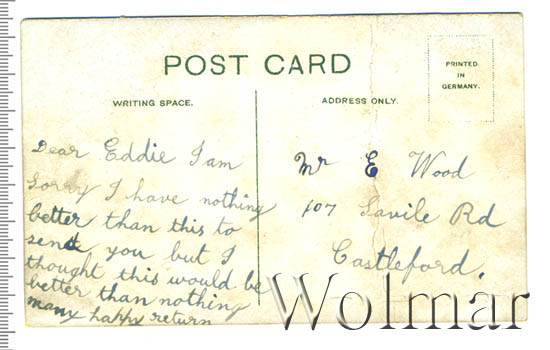 POST CARD
WRITING SPACE.
ADDRESS ONLY.
PRINTED
IN
GERMANY.
Dear Eddie I am
sorry I have nothing
better than this to
send you but I
thought this would be
better than nothing
many happy return
Mr E Wood
107 Savile Rd
Castleford.
Wolmar